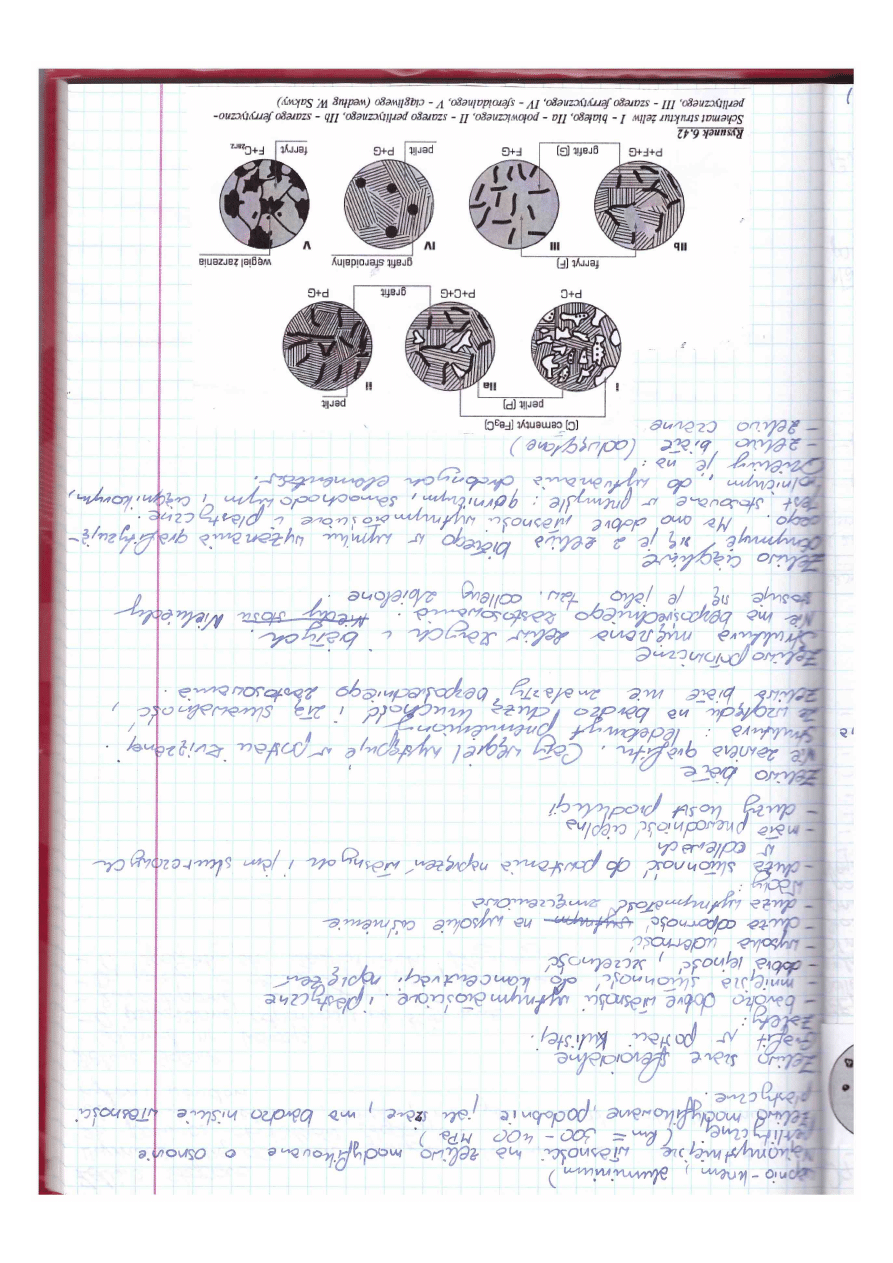 wapnio - krzem, aluminium)
Najkorzystniejsze własności ma żeliwo modyfikowane o osnowie
perlitycznej. (Rm = 300 - 400 MPa)
Żeliwo modyfikowane, podobnie jak szare, ma bardzo niskie własności
plastyczne.
Żeliwo szare sferoidalne
Grafit w postaci kulistej.
Zalety:
- bardzo dobre własności wytrzymałościowe i plastyczne
- mniejsza skłonność do koncentracji naprężeń
- dobra lejność, szczelność
- wysoka udarność
- duża odporność na wysokie ciśnienie
- duża wytrzymałość zmęczeniowa
Wady:
- duża skłonność do powstania naprężeń własnych i jam skurczowych
w odlewach
- mała przewodność cieplna
- duży koszt produkcji
Żeliwo białe
Nie zawiera grafitu. Cały węgiel występuje w postaci związanej.
Struktura: ledeburyt przemieniony
Ze względu na bardzo dużą kruchość i złą skrawalność,
żeliwa białe nie znalazły bezpośredniego zastosowania.
Żeliwo połowiczne
Struktura mieszana żeliw szarych i białych.
Nie ma bezpośredniego zastosowania. Niekiedy
stosuje się je jako tzw. odlewy zbielone.
Żeliwo ciągliwe
Otrzymuje się je z żeliwa białego w wyniku wyżarzania grafityzują-
cego. Ma ono dobre własności wytrzymałościowe i plastyczne.
Jest stosowane w przemyśle: górniczym, samochodowym i ciągnikowym,
rolniczym, do wytwarzania drobnych elementów.
Dzielimy je na:
- żeliwo białe (odwęglane)
- żeliwo czarne
[C] cementyt [Fe3C]
perlit [P] perlit
I IIa II
P+C P+C+G grafit P+G
ferryt [F] grafit sferoidalny węgiel żarzenia
IIb III IV V
P+F+G grafit [G] F+G perlit P+G ferryt F+Cżarz.
Rysunek 6.42
Schemat struktur żeliw I - białego, IIa - połowicznego, II - szarego perlitycznego, IIb - szarego ferryczno-
perlitycznego, III - szarego ferrycznego, IV - sferoidalnego, V - ciągliwego (według W. Sakwy)